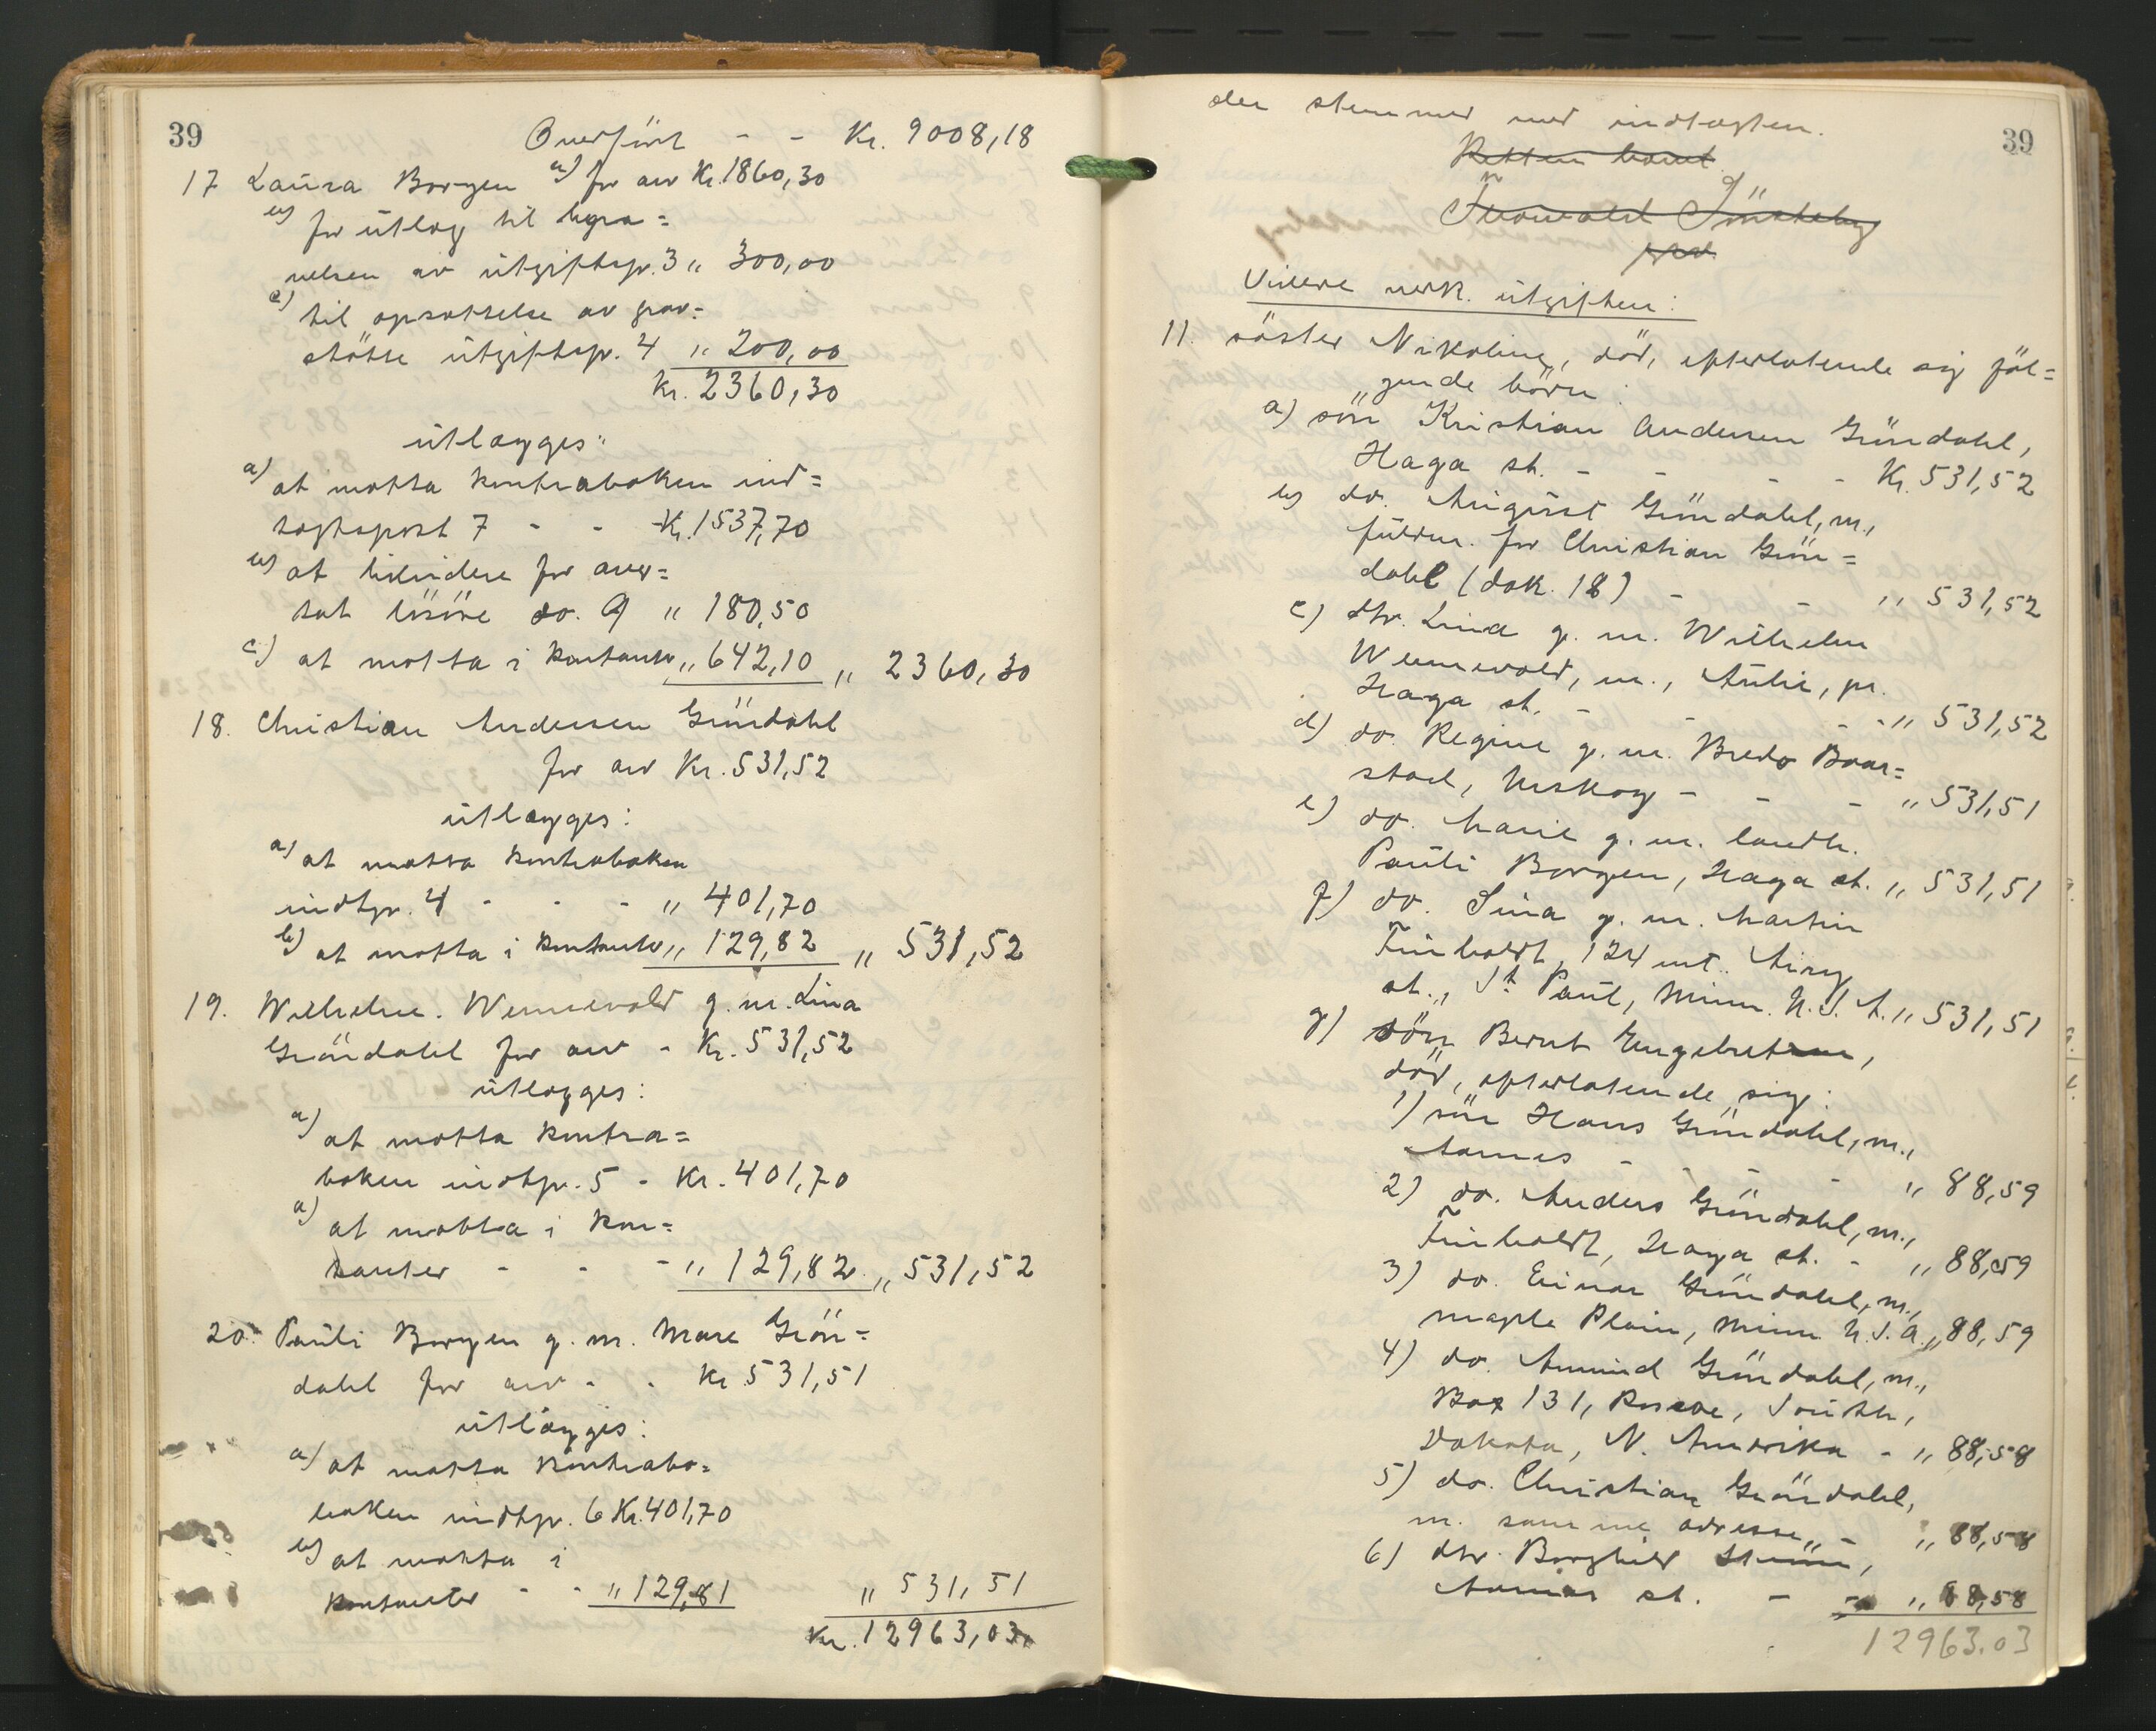 39
Overfört - - Kr. 9008,18
17 Laura Borgen a) for arv Kr. 1860,30
b) for utlæg til begra=
velsen av utgiftsp. 3 „ 300,00
c) til opsættelse av grav=
stötte utgiftsp. 4 „ 200,00
Kr. 2360,30
utlægges:
a) at motta kontraboken ind=
tægtspost 7 - - Kr. 1537,70
b) at likvidere for avær=
tat lösöre do. 9 „ 180,50
c) at motta i kontanter „ 642,10 „ 2360,30
18. Christian Andersen Gröndahl
for arv Kr. 531,52
utlægges:
a) at motta kontraboken
indtp. 4 - - - „ 401,70
b) at motta i kontanter „ 129,82 „ 531,52
19. Wilhelm Wennevold g. m. Lina
Gröndahl for arv - Kr. 531,52
utlægges:
a) at motta kontra=
boken indtp. 5 - Kr. 401,70
a) at motta i kon=
tanter - - - „ 129,82 „ 531,52
20. Pauli Borgen g. m. Mare Grön=
dahl for arv - - Kr 531,51
utlægges:
a) at motta kontrabo=
boken indtp. 6 Kr. 401,70
b) at motta i
kontanter - - „ 129,81 „ 531,51
Kr. 12963,03
39
der stemmer med indtægten.
Retten hævet
Thorvald Jönsleby
Videre merk. utgiften:
11. söster Nikoline, död, efterlatende sig föl=
gende börn:
a) sön Kristian Andersen Gröndahl,
Haga st. - - - - Kr. 531,52
b) do. August Gröndahl, m.,
fuldm. for Christian Grön=
dahl (dok. 18) - - „ 531,52
c) dtr. Lina g. m. Wilhelm
Wennevold, m., Auli, pr.
Haga st. - - - - „ 531,52
d) do. Regine g. m. Bredo Baar=
stad, Urskog - - - „ 531,51
e) do. Marie g. m. landh.
Pauli Borgen, Haga st. „ 531,51
f) do. Sina g. m. Martin
Finholdt, 124 mt. Airy
st., St Paul, Minn. U.S.A. „ 531,51
g) sön Bernt Engebret,
död, efterlatende sig:
1) sön Hans Gröndahl, m.,
Aarnes - - - - „ 88,59
2) do. Anders Gröndahl, m.,
Finholdt, Haga st. - „ 88,59
3) do. Einar Gröndahl, m.,
Maple Plain, Minn. U.S.A. „ 88,59
4) do. Amund Gröndahl, m.,
Box 131, Roscoe, South,
Dakota, N. Amerika - „ 88,58
5) do. Christian Gröndahl,
m. samme adresse, - „ 88,58
6) dtr. Borghild
Aarnes st. - - „ 88,58
12963.03